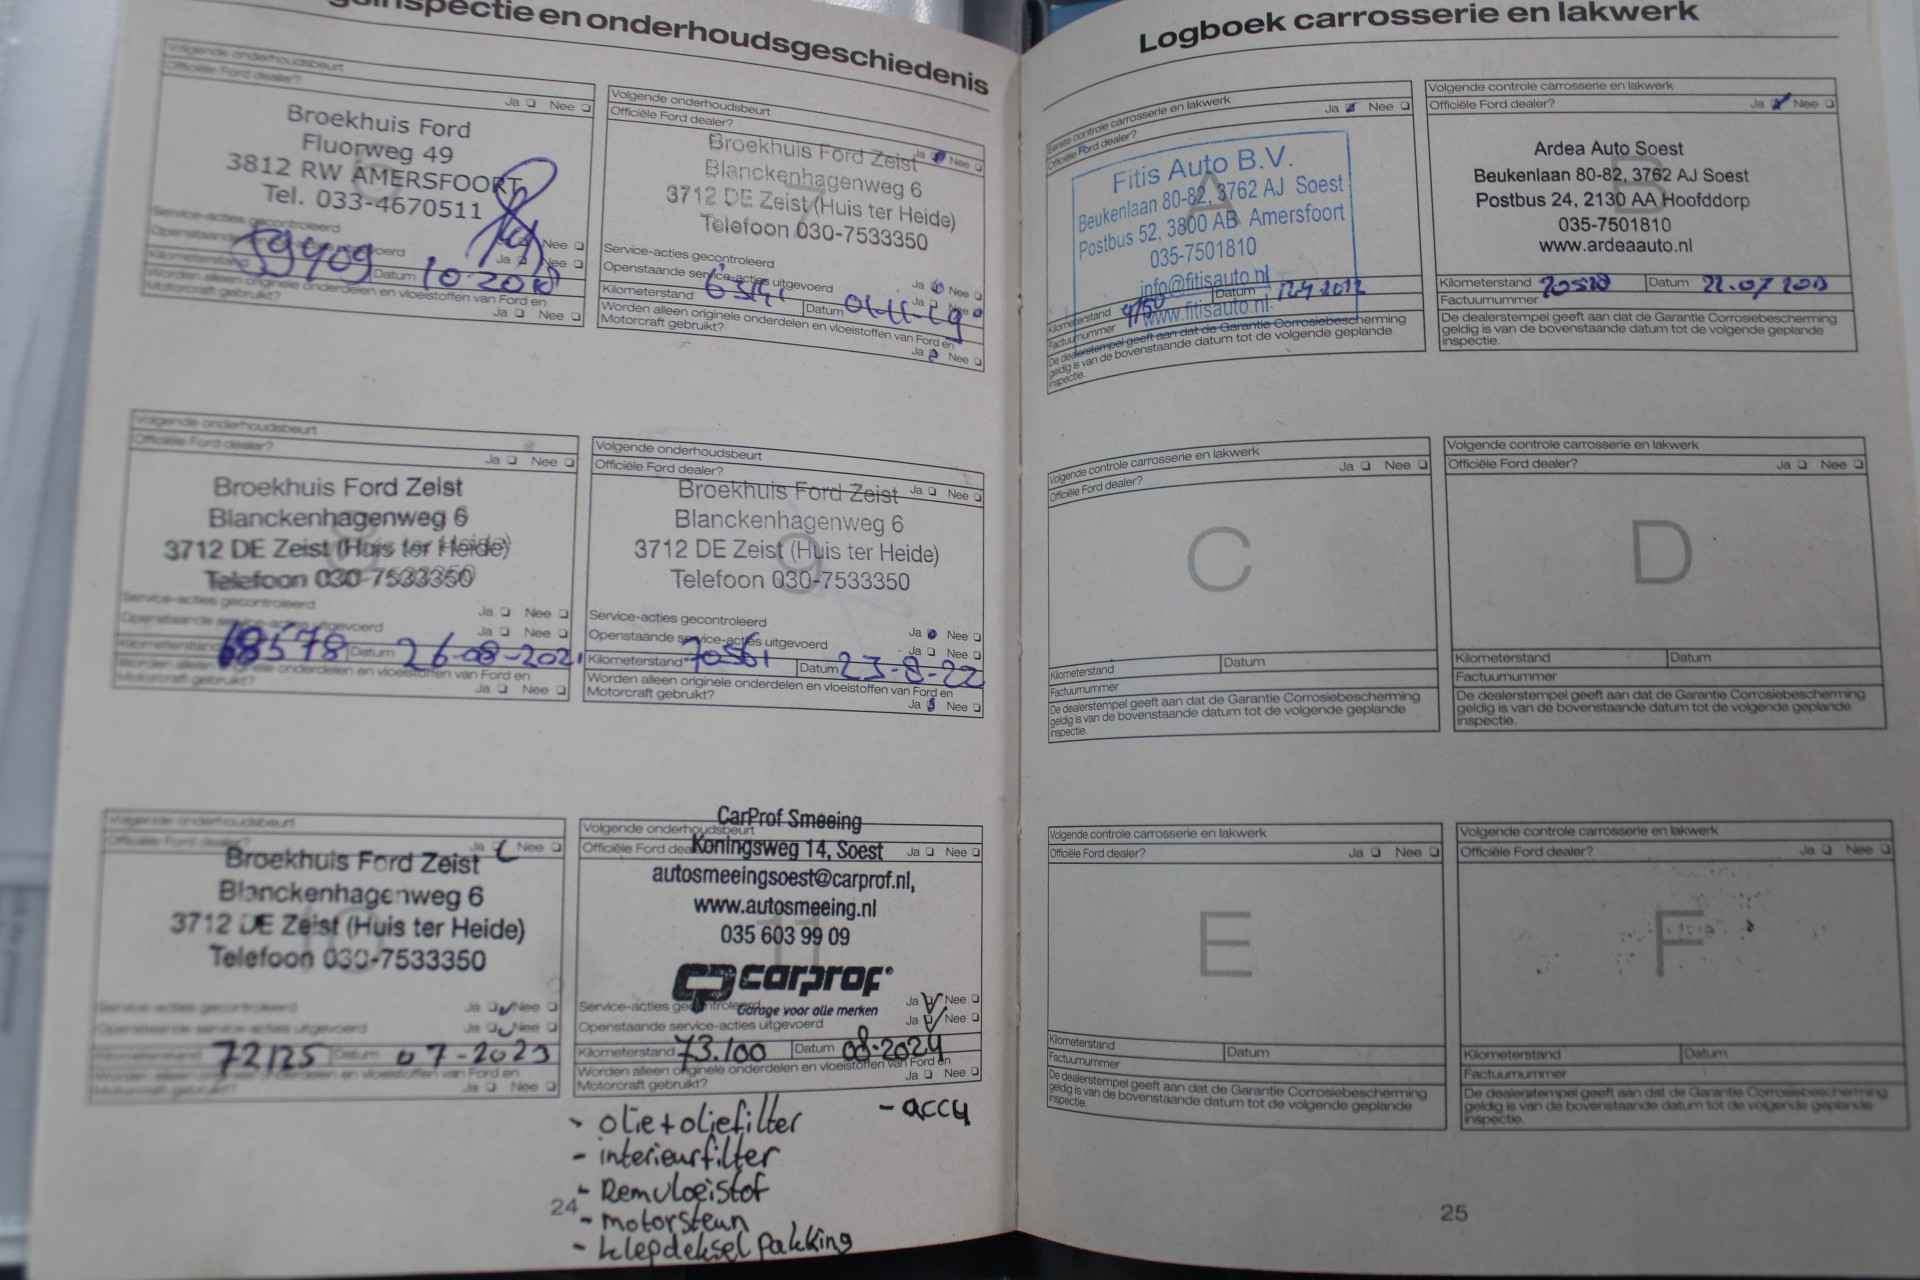 onderhoudsgeschiedenis
Volgende onderhoudsbeurt
Officiële Ford dealer?
Ja Nee
Broekhuis Ford
Fluorweg 49
3812 RW AMERSFOORT
Tel. 033-4670511
Service-acties gecontroleerd
Ja Nee
59409 Datum 10-2018
Worden alleen originele onderdelen en vloeistoffen van Ford en
Motorcraft gebruikt?
Ja Nee
Volgende onderhoudsbeurt
Officiële Ford dealer?
Ja Nee
Broekhuis Ford Zeist
Blanckenhagenweg 6
3712 DE Zeist (Huis ter Heide)
Telefoon 030-7533350
Service-acties gecontroleerd
Ja Nee
Openstaande service-acties uitgevoerd
Ja Nee
Kilometerstand Datum
Worden alleen originele onderdelen en vloeistoffen van Ford en
Motorcraft gebruikt?
Ja Nee
Volgende onderhoudsbeurt
Officiële Ford dealer?
Ja Nee
Broekhuis Ford Zeist
Blanckenhagenweg 6
3712 DE Zeist (Huis ter Heide)
Telefoon 030-7533350
Service-acties gecontroleerd
Ja Nee
Openstaande service-acties uitgevoerd
Ja Nee
Kilometerstand 68578 Datum 26-08-2021
Worden alleen originele onderdelen en vloeistoffen van Ford en
Motorcraft gebruikt?
Ja Nee
Volgende onderhoudsbeurt
Officiële Ford dealer?
Ja Nee
Broekhuis Ford Zeist
Blanckenhagenweg 6
9
3712 DE Zeist (Huis ter Heide)
Telefoon 030-7533350
Service-acties gecontroleerd
Ja Nee
Openstaande service-acties uitgevoerd
Ja Nee
Kilometerstand 70561 Datum 23-8-22
Worden alleen originele onderdelen en vloeistoffen van Ford en
Motorcraft gebruikt?
Ja Nee
Volgende onderhoudsbeurt
Officiële Ford dealer?
Ja Nee
Broekhuis Ford Zeist
Blanckenhagenweg 6
10
3712 DE Zeist (Huis ter Heide)
Telefoon 030-7533350
Service-acties gecontroleerd
Ja Nee
Openstaande service-acties uitgevoerd
Ja Nee
Kilometerstand 72125 Datum 07-2023
Worden alleen originele onderdelen en vloeistoffen van Ford en
Motorcraft gebruikt?
Ja Nee
CarProf Smeeing
Volgende onderhoudsbeurt
Koningsweg 14, Soest
Ja Nee
autosmeeingsoest@carprof.nl,
www.autosmeeing.nl
11
035 603 99 09
CP carprof
Garage voor alle merken
Service-acties gecontroleerd
Ja Nee
Openstaande service-acties uitgevoerd
Ja Nee
Kilometerstand 73.100 Datum 08-2024
Worden alleen originele onderdelen en vloeistoffen van Ford en
Motorcraft gebruikt?
Ja Nee
- olie + oliefilter
- accu
- interieurfilter
- Remvloeistof
- motorsteun
- klepdekselpakking
24
Logboek carrosserie en lakwerk
Eerste controle carrosserie en lakwerk
Officiële Ford dealer?
Ja Nee
A
Fitis Auto B.V.
Beukenlaan 80-82, 3762 AJ Soest
Postbus 52, 3800 AB Amersfoort
035-7501810
info@fitisauto.nl
www.fitisauto.nl
Kilometerstand Datum
Factuurnummer
De dealerstempel geeft aan dat de Garantie Corrosiebescherming
geldig is van de bovenstaande datum tot de volgende geplande
inspectie.
Volgende controle carrosserie en lakwerk
Officiële Ford dealer?
Ja Nee
B
Ardea Auto Soest
Beukenlaan 80-82, 3762 AJ Soest
Postbus 24, 2130 AA Hoofddorp
035-7501810
www.ardeaauto.nl
Kilometerstand Datum
Factuurnummer
De dealerstempel geeft aan dat de Garantie Corrosiebescherming
geldig is van de bovenstaande datum tot de volgende geplande
inspectie.
Volgende controle carrosserie en lakwerk
Officiële Ford dealer?
Ja Nee
C
Kilometerstand Datum
Factuurnummer
De dealerstempel geeft aan dat de Garantie Corrosiebescherming
geldig is van de bovenstaande datum tot de volgende geplande
inspectie.
Volgende controle carrosserie en lakwerk
Officiële Ford dealer?
Ja Nee
D
Kilometerstand Datum
Factuurnummer
De dealerstempel geeft aan dat de Garantie Corrosiebescherming
geldig is van de bovenstaande datum tot de volgende geplande
inspectie.
Volgende controle carrosserie en lakwerk
Officiële Ford dealer?
Ja Nee
E
Kilometerstand Datum
Factuurnummer
De dealerstempel geeft aan dat de Garantie Corrosiebescherming
geldig is van de bovenstaande datum tot de volgende geplande
inspectie.
Volgende controle carrosserie en lakwerk
Officiële Ford dealer?
Ja Nee
F
Kilometerstand Datum
Factuurnummer
De dealerstempel geeft aan dat de Garantie Corrosiebescherming
geldig is van de bovenstaande datum tot de volgende geplande
inspectie.
25